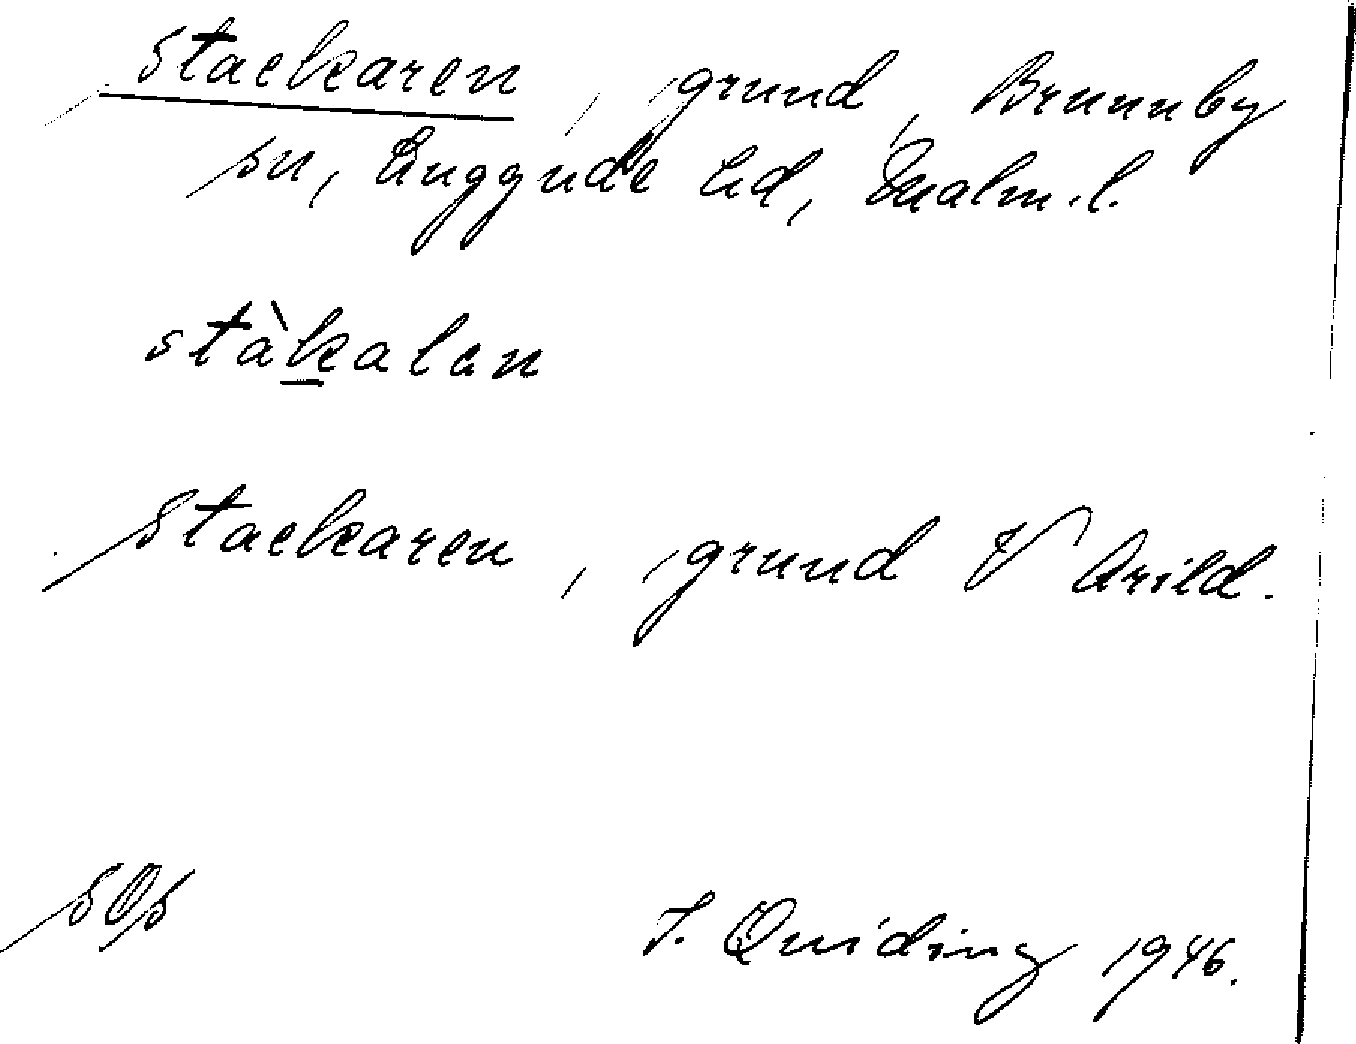 Stackaren, grund, Brunnby
sn, Luggude hd, Malm.l.
stàkalan
Stackaren, grund V Arild.
SOs
J. Quiding 1946.